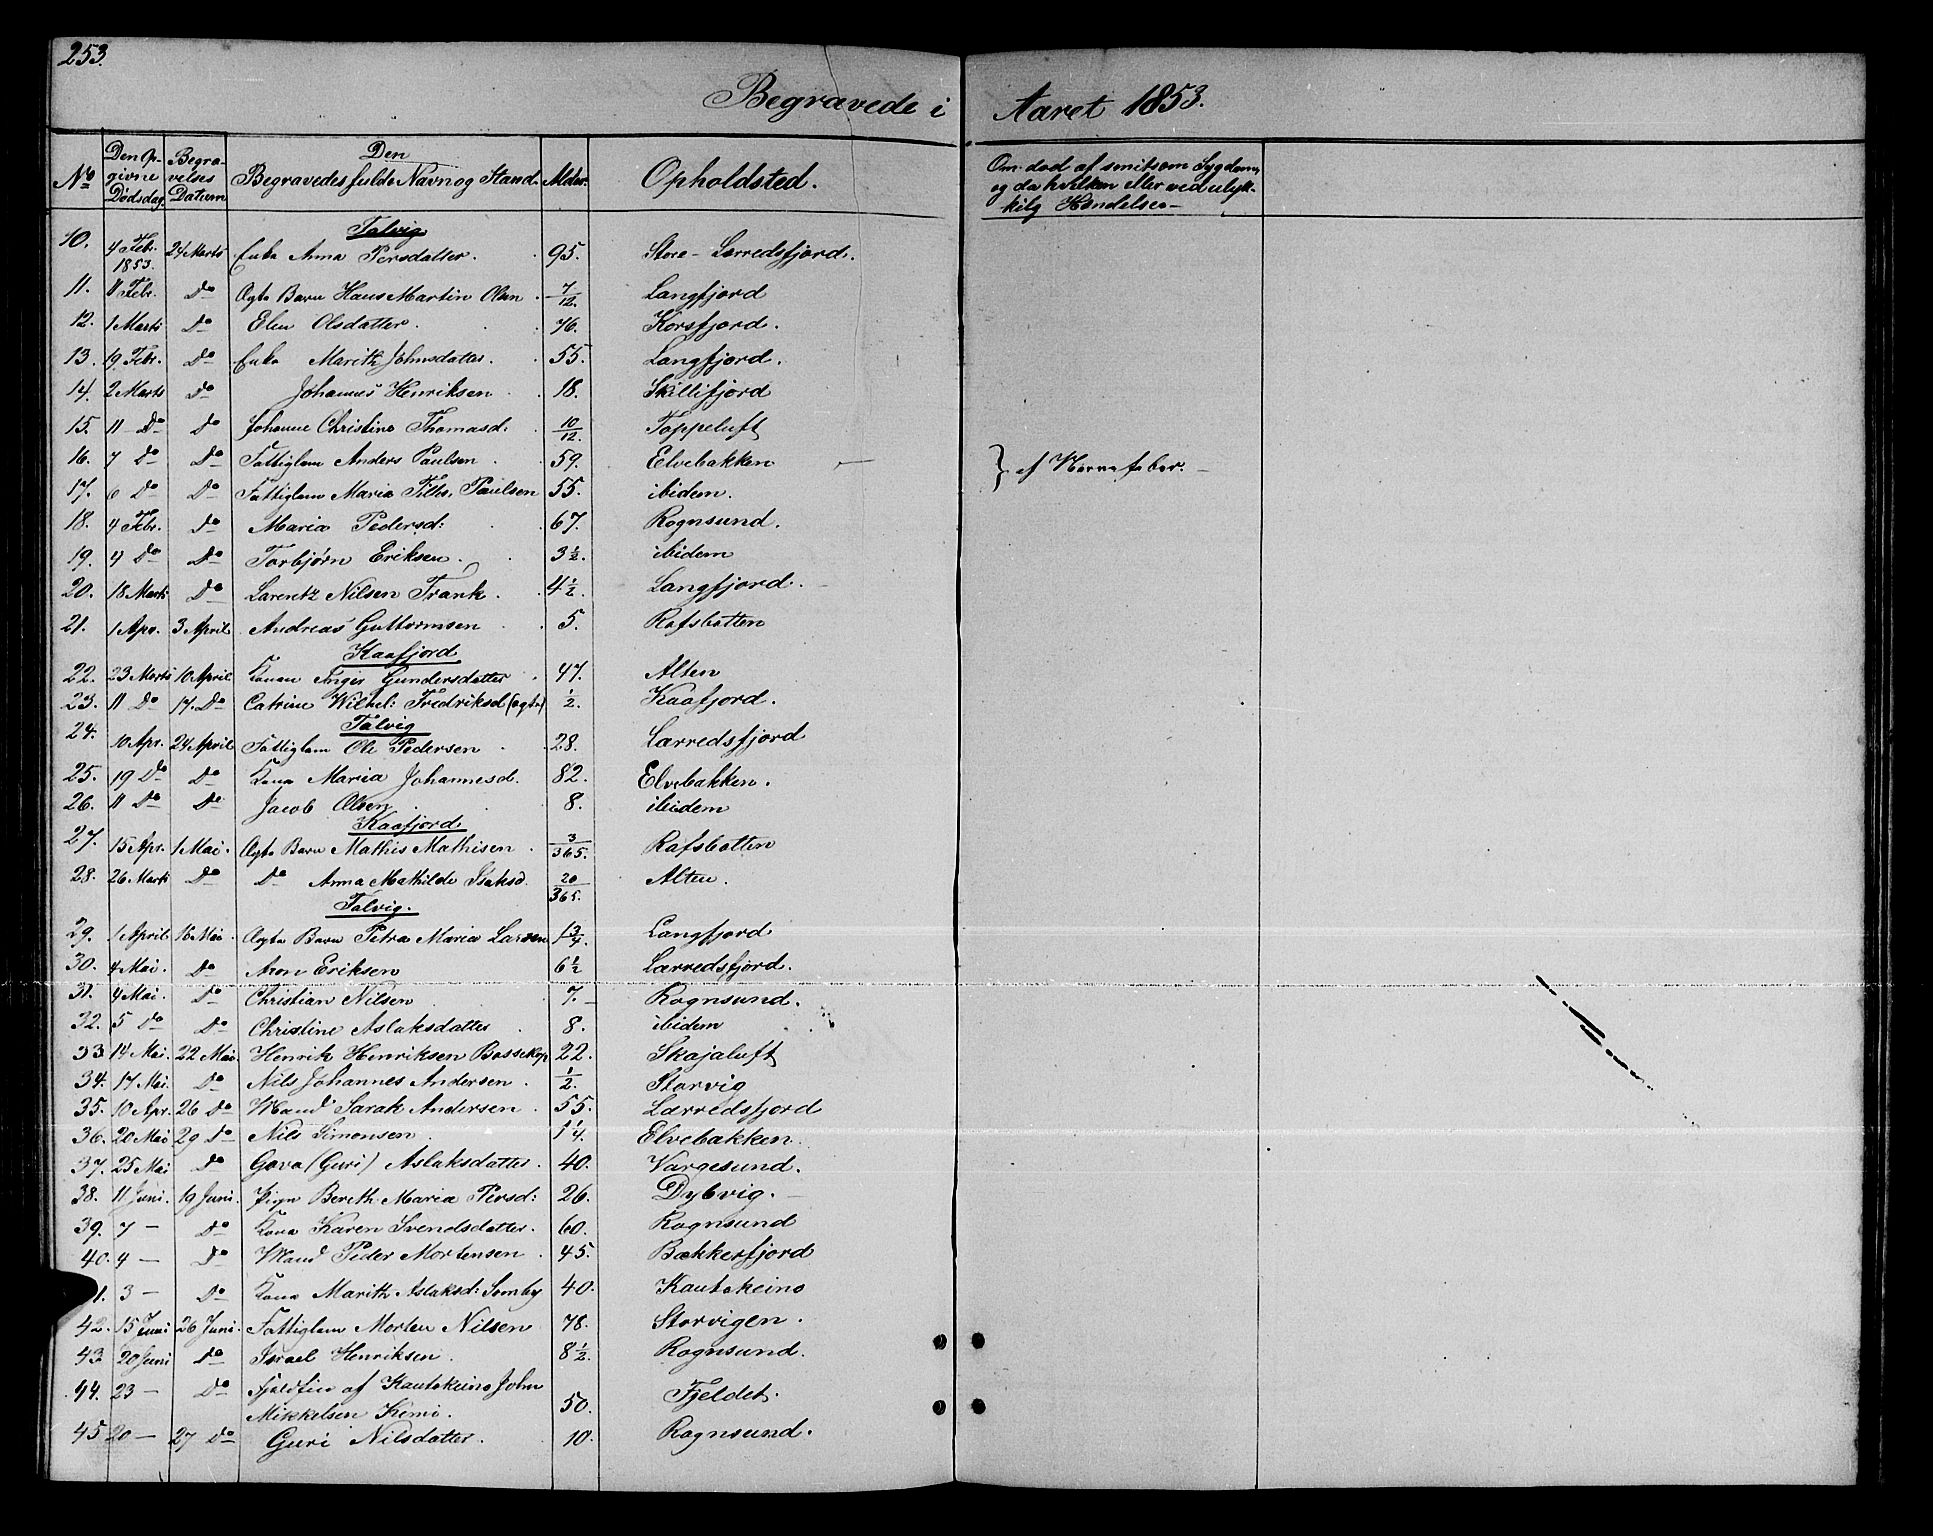 253.
Begravede i Aaret 1853.
No Den Opgivne Dødsdag. Begravelses Datum Den Begravedes fulde Navn og Stand. Alder. Opholdsted. Om død af smitsom Sygdom, og da hvilken eller ved ulykkelig Hændelse—
Talvig
10. 4 Febr. 1853. 24 Marts Enke Anna Persdatter. 95. Store-Lerredsfjord.
11. 11 Febr. Do Ægte Barn Hans Martin Olsen. 7/12. Langfjord
12. 1 Marts Do Elen Olsdatter. 76. Korsfjord.
13. 19 Febr. Do Enke Marith Johnsdatter. 55. Langfjord.
14. 2 Marts Do Johannes Henriksen. 18. Skillifjord
15. 11 Do Do Johanne Christine Thomasd. 10/12. Toppeluft
16. 7 Do Do Fattiglem Anders Paulsen. 59. Elvebakken — } af Nervefeber. —
17. 6 Do Do Fattiglem Maria Paulsen 55. ibidem.
18. 4 Febr. Do Maria Pedersd: 67. Rognsund.
19. 4 Do Do Torbjørn Eriksen. 3 1/2. ibidem
20. 18 Marts Do Larentz Nilsen Frank. 4 1/2. Langfjord.
21. 1 Apr. 3 April Andreas Guttormsen 5. Rafsbotten
Kaafjord
22. 23 Marts 10 April Konen Inger Gundersdatter. 47. Alten
23. 11 Do 17. Do Catrine Wilhel: Fredriksd (ægte) 1/2. Kaafjord.
Talvig
24. 10 Apr. 24 April Fattiglem Ole Pedersen. 28. Lærredsfjord
25. 19 Do Do Kone Maria Johannesd. 82. Elvebakken.
26. 11 Do Do Jacob Olsen. 8. ibidem
Kaafjord
27. 15 Apr. 1 Mai. Ægte Barn Mathis Mathisen. 3/365. Rafsbotten
28. 26 Marts Do Do Anna Mathilde Isaksd. 20/365. Alten.
Talvig.
29. 1 April 16 Mai. Ægte Barn Petra Maria Larsen 1 3/4. Langfjord
30. 4 Mai. Do Aron Eriksen 6 1/2 Lærredsfjord.
31. 4 Mai. Do Christian Nilsen 7. — Rognsund.
32. 5 Do Do Christine Aslaksdatter. 8. ibidem
33. 14 Mai. 22 Mai. Henrik Henriksen Bossekop 22. Skajaluft
34. 17 Mai. Do Nils Johannes Andersen. 1/2. Storvig
35. 10 Apr. 26 Do Mand Sarak Andersen. 55. Lærredsfjord
36. 20 Mai 29 Do Nils Simonsen. 1 1/4. Elvebakken.
37. 25 Mai Do Gava (Guri) Aslaksdatter. 40. Vargesund.
38. 11 Juni. 19 Juni. Pige Bereth Maria Persd: 26. Dybvig. —
39. 7 — Do Kone Karen Svendsdatter. 60. Rognsund
40. 4 — Do Mand Peder Mortensen. 45. Bækkerfjord
1. 3 — Do Kone Marith Aslaksd: Somby 40. Kautokeino
42. 15 Juni 26 Juni. Fattiglem Morten Nilsen 78. Storvigen.
43. 20 Juni Do Israel Henriksen. 8 1/2. Rognsund.
44. 23 — Do Fjeldfin af Kautokeino John
Mikkelsen Kemi. 50. Fjeldet.
45 20 — 27 Do Guri Nilsdatter. 10. Rognsund.